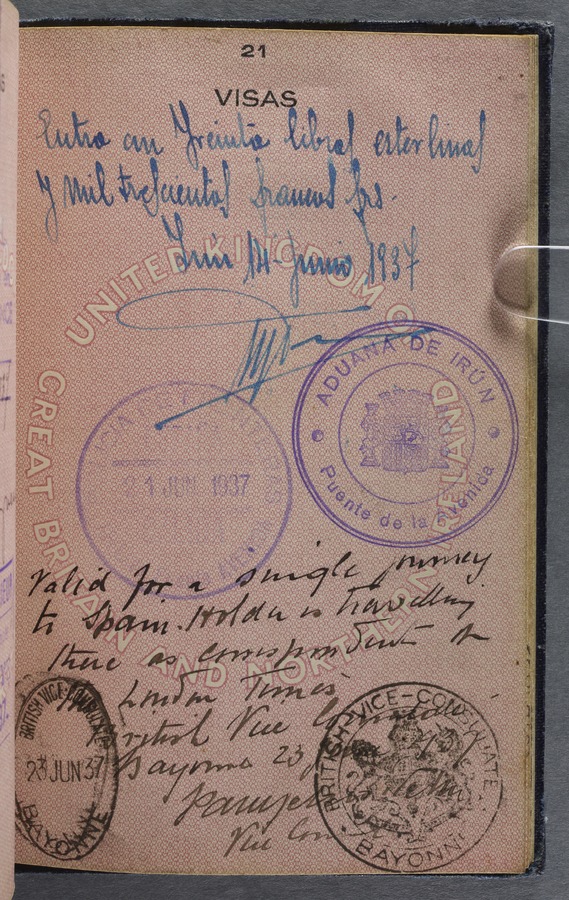 21
VISAS
Entra con Treinta libras esterlinas
y mil trescientos francos frs.
Irún 14 Junio 1937
UNITED KINGDOM OF
GREAT BRITAIN AND NORTHERN IRELAND
ADUANA DE IRÚN
Puente de la Avenida
21 JUN 1937
Valid for a single journey
to Spain. Holder is travelling
there as correspondent of
London Times
British Vice
Bayonne 23
Vice
BRITISH VICE-CONSULATE
23 JUN 37
BAYONNE
BRITISH VICE-CONSULATE
BAYONNE